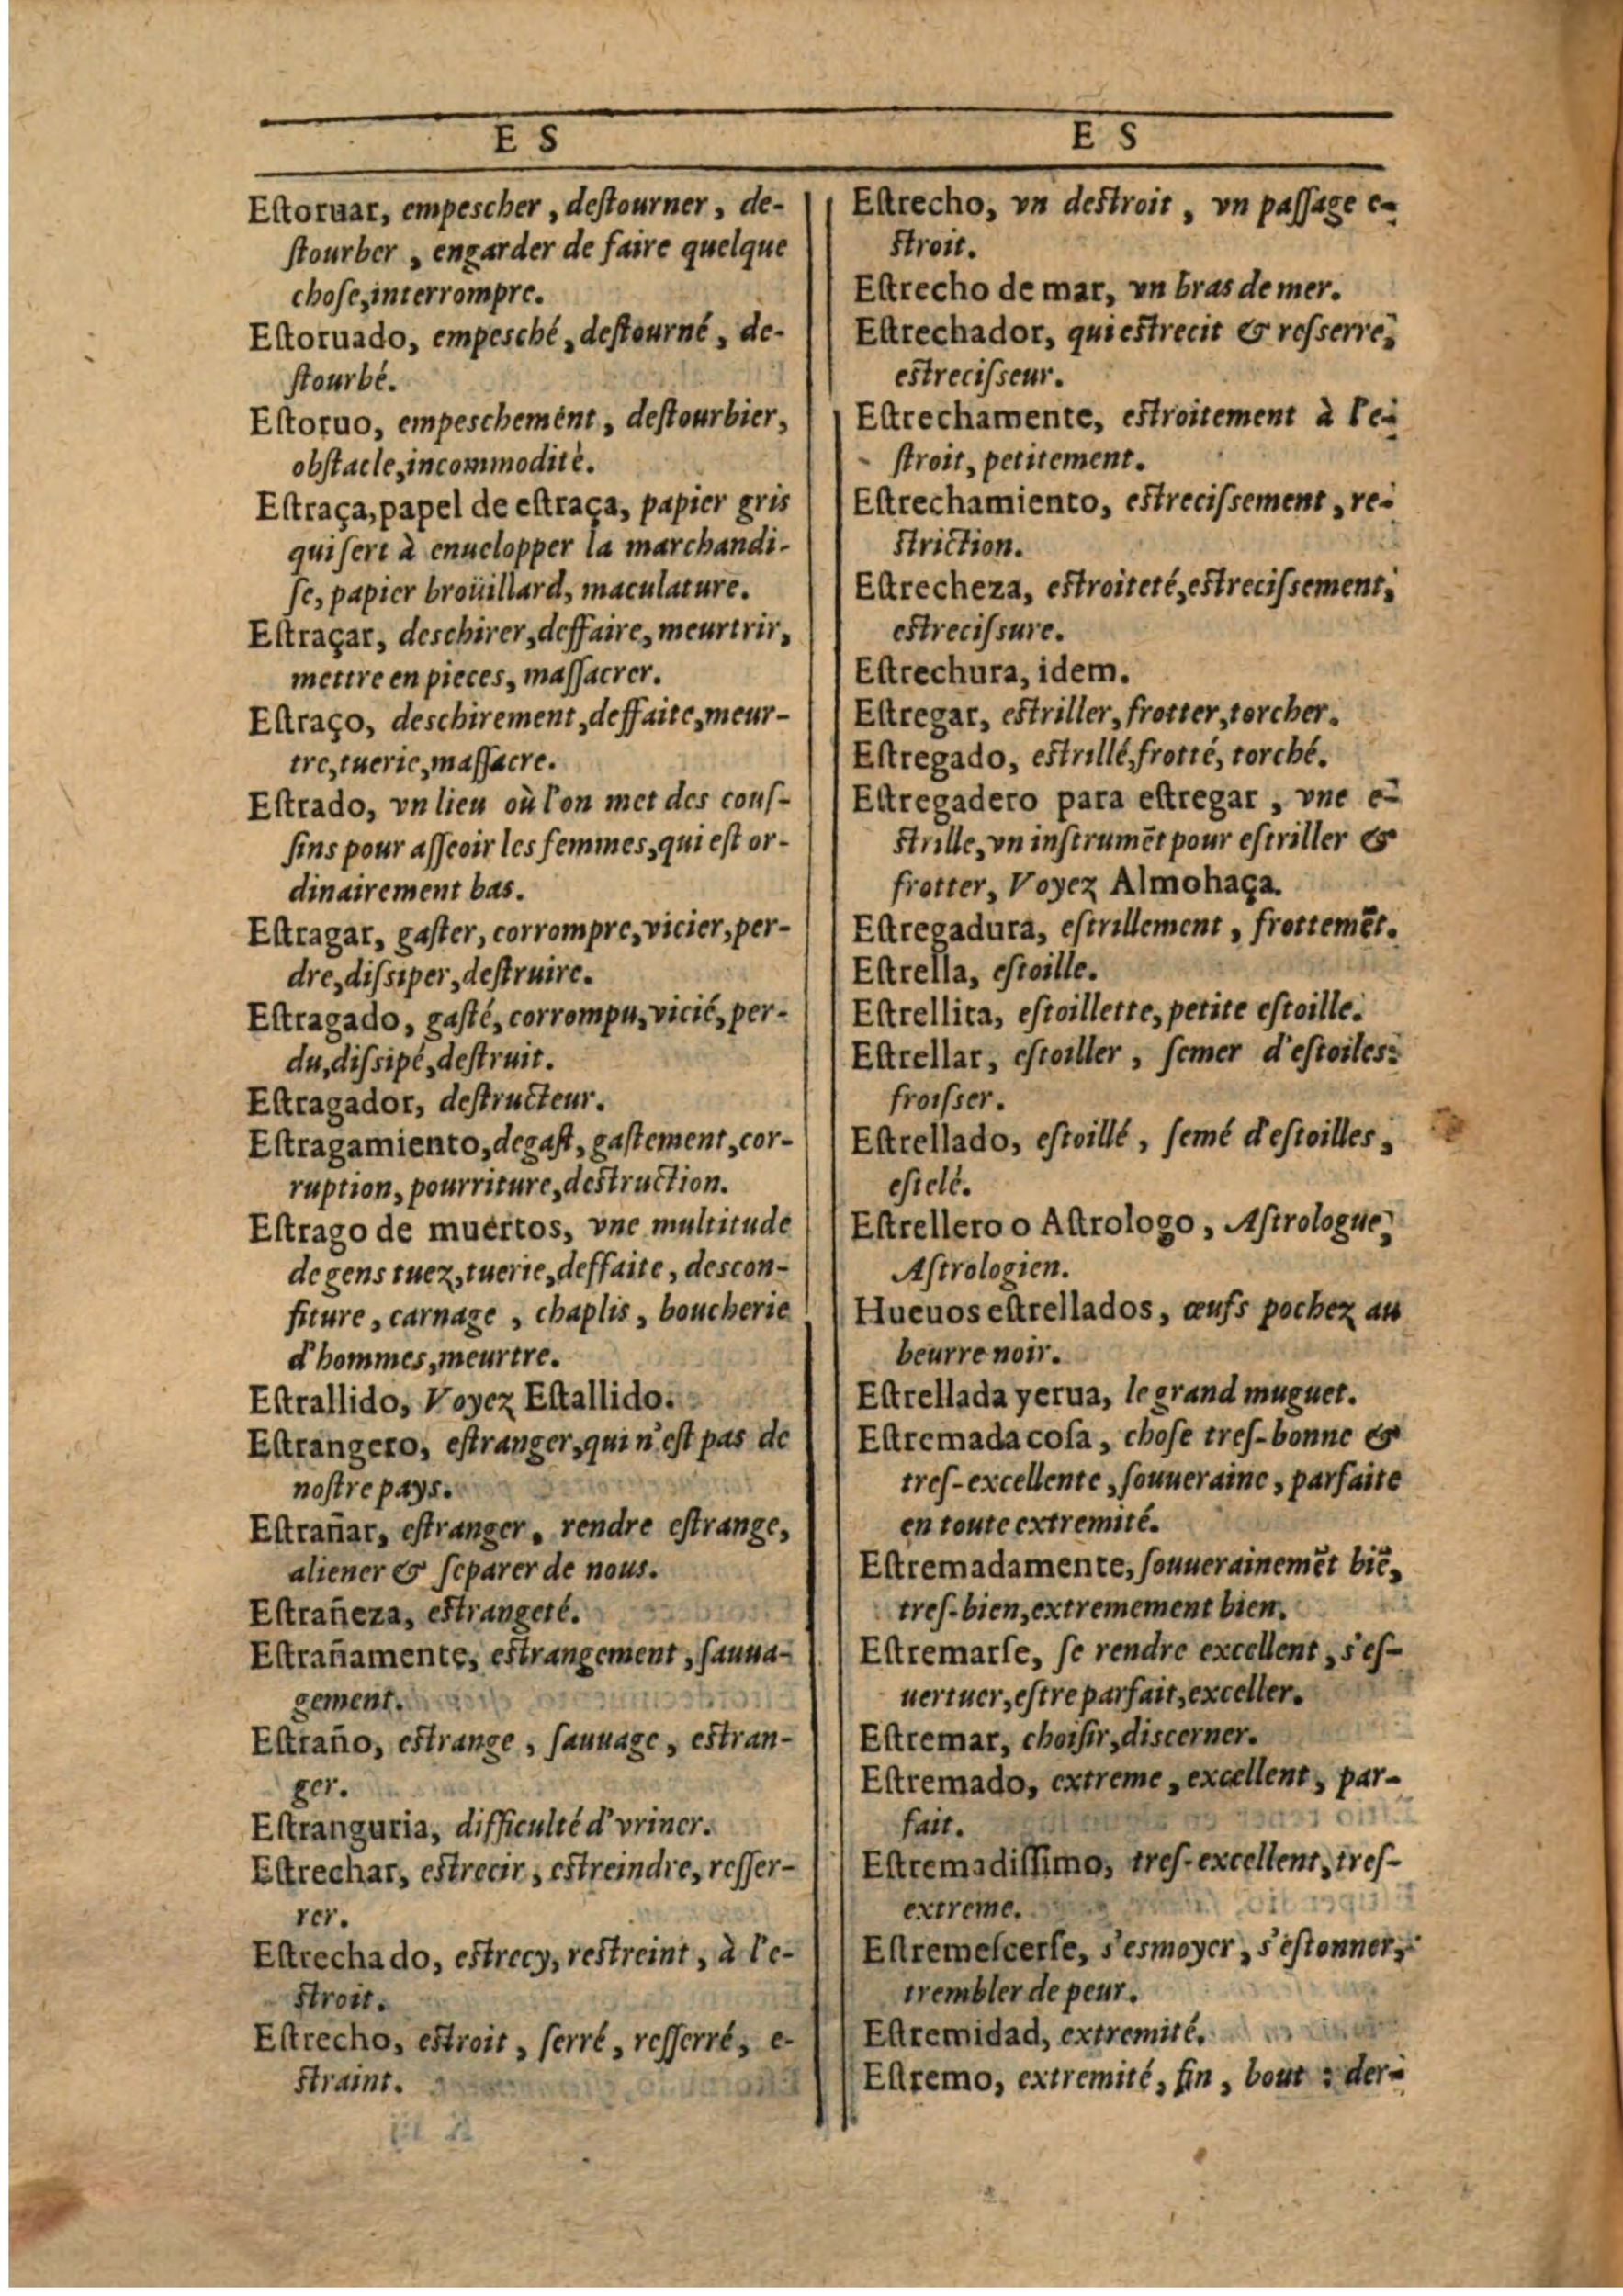 E S
Eſtoruar, empeſcher, deſtourner, de-
ſtourber, engarder de faire quelque
choſe, interrompre.
Eſtoruado, empeſché, deſtourné, de-
ſtourbé.
Eſtoruo, empeſchemẻnt, deſtourbier,
obſtacle, incommodité.
Eſtraça, papel de eſtraça, papier gris
qui ſert à enuelopper la marchandi-
ſe, papier broüillard, maculature.
Eſtraçar, deſchirer, deffaire, meurtrir,
mettre en pieces, maſſacrer.
Eſtraço, deſchirement, deffaite, meur-
tre, tuerie, maſſacre.
Eſtrado, vn lieu où l'on met des couſ-
ſins pour aſſeoir les femmes, qui eſt or-
dinairement bas.
Eſtragar, gaſter, corrompre, vicier, per-
dre, diſsiper, deſtruire.
Eſtragado, gaſté, corrompu, vicié, per-
du, diſsipé, deſtruit.
Eſtragador, deſtructeur.
Eſtragamiento, degaſt, gaſtement, cor-
ruption, pourriture, deſtruction.
Eſtrago de muertos, vne multitude
de gens tuez, tuerie, deffaite, descon-
fiture, carnage, chaplis, boucherie
d'hommes, meurtre.
Eſtrallido, Voyez Eſtallido.
Eſtrangero, eſtranger, qui n'eſt pas de
noſtre pays.
Eſtrañar, eſtranger, rendre eſtrange,
aliener & ſeparer de nous.
Eſtrañeza, eſtrangeté.
Eſtrañamente, eſtrangement, ſauua-
gement.
Eſtraño, eſtrange, ſauuage, eſtran-
ger.
Eſtranguria, difficulté d'vriner.
Eſtrechar, eſtrecir, eſtreindre, reſſer-
rer.
Eſtrechado, eſtrecy, reſtreint, à l'e-
ſtroit.
Eſtrecho, eſtroit, ſerré, reſſerré, e-
ſtraint.
E S
Eſtrecho, vn deſtroit, vn paſſage e-
ſtroit.
Eſtrecho de mar, vn bras de mer.
Eſtrechador, qui eſtrecit & reſserre,
eſtreciſseur.
Eſtrechamente, eſtroitement à l'e-
ſtroit, petitement.
Eſtrechamiento, eſtreciſsement, re-
ſtriction.
Eſtrecheza, eſtroiteté, eſtreciſsement,
eſtreciſsure.
Eſtrechura, idem.
Eſtregar, eſtriller, frotter, torcher.
Eſtregado, eſtrillé, frotté, torché.
Eſtregadero para eſtregar, vne e-
ſtrille, vn inſtrumẽt pour eſtriller &
frotter, Voyez Almohaça.
Eſtregadura, eſtrillement, frottemẽt.
Eſtrella, eſtoille.
Eſtrellita, eſtoillette, petite eſtoille.
Eſtrellar, eſtoiller, ſemer d'eſtoiles:
froiſser.
Eſtrellado, eſtoillé, ſemé d'eſtoilles,
eſtelé.
Eſtrellero o Aſtrologo, Aſtrologue,
Aſtrologien.
Hueuos eſtrellados, œufs pochez au
beurre noir.
Eſtrellada yerua, le grand muguet.
Eſtremada coſa, choſe treſ-bonne &
treſ-excellente, ſouueraine, parfaite
en toute extremité.
Eſtremadamente, ſouuerainemẽt biẽ,
treſ-bien, extremement bien.
Eſtremarſe, ſe rendre excellent, s'eſ-
uertuer, eſtre parfait, exceller.
Eſtremar, choiſir, discerner.
Eſtremado, extreme, excellent, par-
fait.
Eſtremadiſſimo, treſ-excellent, treſ-
extreme.
Eſtremeſcerſe, s'esmoyer, s'eſtonner,
trembler de peur.
Eſtremidad, extremité.
Eſtremo, extremité, fin, bout: der-